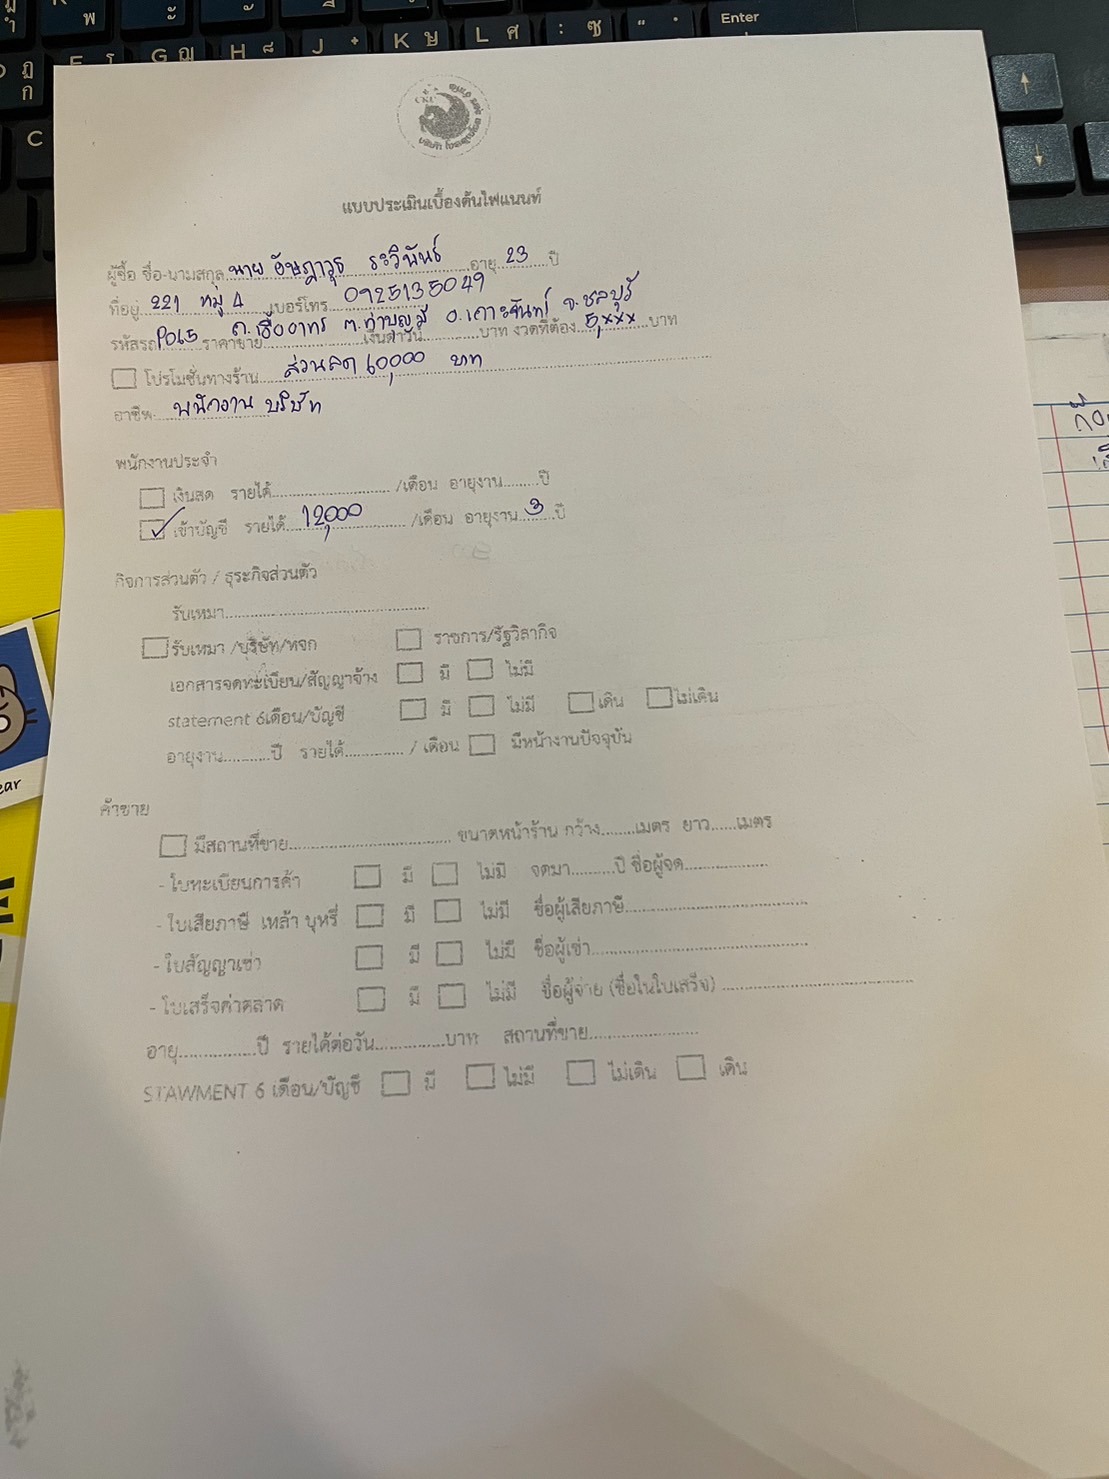 Enter
พ
G
H
J
K ษ
L ศ
: ซ
ฏ
ก
C
CKC
แบบประเมินเบื้องต้นไฟแนนท์
ผู้ซื้อ ชื่อ-นามสกุล นาย อัษฎาวุธ ระวินันธ์ อายุ 23 ปี
ที่อยู่ 221 หมู่ 4 เบอร์โทร 0925135049
ต.ท่าบุญมี อ.เกาะจันทร์ จ.ชลบุรี
รหัสรถ P065 ราคาขาย..........เงินดาวน์..........บาท งวดที่ต้อง 5,xxx บาท
☐ โปรโมชั่นทางร้าน ส่วนลด 60,000 บาท
อาชีพ พนักงาน บริษัท
พนักงานประจำ
☐ เงินสด รายได้.............................. /เดือน อายุงาน.........ปี
☑ เข้าบัญชี รายได้ 12,000 /เดือน อายุงาน 3 ปี
กิจการส่วนตัว / ธุระกิจส่วนตัว
รับเหมา..................................................
☐ รับเหมา /บริษัท/หจก ☐ ราชการ/รัฐวิสากิจ
เอกสารจดทะเบียน/สัญญาจ้าง ☐ มี ☐ ไม่มี
statement 6เดือน/บัญชี ☐ มี ☐ ไม่มี ☐ เดิน ☐ ไม่เดิน
อายุงาน............ปี รายได้............... / เดือน ☐ มีหน้างานปัจจุบัน
ค้าขาย
☐ มีสถานที่ขาย........................................ ขนาดหน้าร้าน กว้าง........เมตร ยาว......เมตร
- ใบทะเบียนการค้า ☐ มี ☐ ไม่มี จดมา..........ปี ชื่อผู้จด....................
- ใบเสียภาษี เหล้า บุหรี่ ☐ มี ☐ ไม่มี ชื่อผู้เสียภาษี............................................
- ใบสัญญาเช่า ☐ มี ☐ ไม่มี ชื่อผู้เช่า....................................................
- ใบเสร็จค่าตลาด ☐ มี ☐ ไม่มี ชื่อผู้จ่าย (ชื่อในใบเสร็จ) ..............................................
อายุ...................ปี รายได้ต่อวัน.................บาท สถานที่ขาย...........................
STAWMENT 6 เดือน/บัญชี ☐ มี ☐ ไม่มี ☐ ไม่เดิน ☐ เดิน
ear